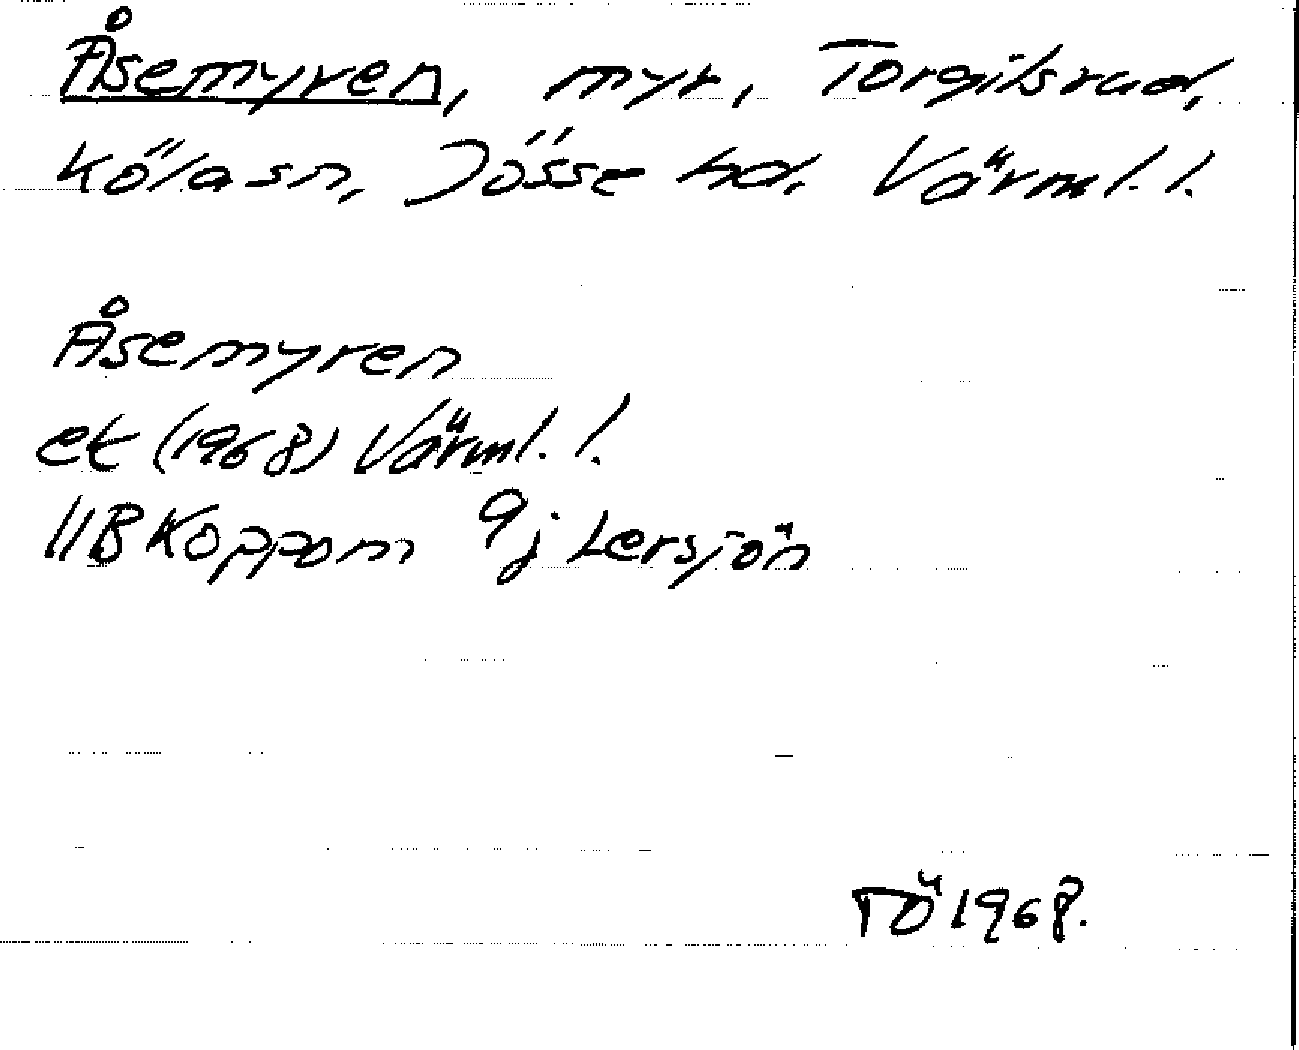 Åsemyren, myr, Torgilsrud,
Köla sn, Jösse hd. Värml. l.
Åsemyren
ek (1968) Värml. l.
11B Koppom 9j Lersjön
TÖ 1968.